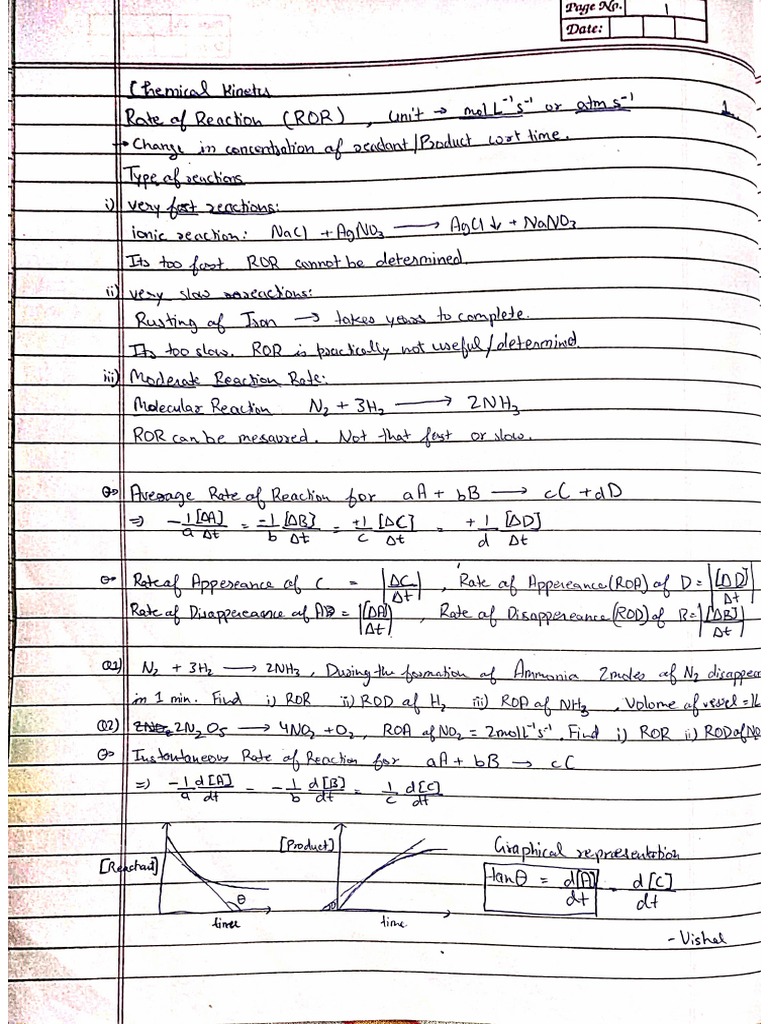 Page No. 1
Date:
Chemical Kinetics
Rate of Reaction (ROR) , unit → mol L⁻¹ s⁻¹ or atm s⁻¹ 1.
→ Change in concentration of reactant/Product wrt time.
Type of reactions
i) very fast reactions:
ionic reaction: NaCl + AgNO₃ ⟶ AgCl↓ + NaNO₃
Its too fast. ROR cannot be determined.
ii) very slow reactions:
Rusting of Iron → takes years to complete.
Its too slow. ROR is practically not useful/determined.
iii) Moderate Reaction Rate:
Molecular Reaction N₂ + 3H₂ ⟶ 2NH₃
ROR can be mesaured. Not that fast or slow.
Average Rate of Reaction for aA + bB ⟶ cC + dD
⇒ -1/a [ΔA]/Δt = -1/b [ΔB]/Δt = +1/c [ΔC]/Δt = +1/d [ΔD]/Δt
Rate of Appereance of C = |ΔC/Δt| , Rate of Appereance (ROA) of D = |[ΔD]/Δt|
Rate of Disappereance of A = |[ΔA]/Δt| , Rate of Disappereance (ROD) of B = |[ΔB]/Δt|
Q1) N₂ + 3H₂ ⟶ 2NH₃ , During the formation of Ammonia 2moles of N₂ disappea
in 1 min. Find i) ROR ii) ROD of H₂ iii) ROA of NH₃ , Volume of vessel = 1L
Q2) 2N₂O₅ ⟶ 4NO₂ + O₂ , ROA of NO₂ = 2mol L⁻¹ s⁻¹. Find i) ROR ii) ROD of N₂O
Instantaneous Rate of Reaction for aA + bB → cC
⇒ -1/a d[A]/dt = -1/b d[B]/dt = 1/c d[C]/dt
[Reactant] θ time
[Product] θ time
Graphical representation
tanθ = d[A]/dt = d[C]/dt
- Vishal